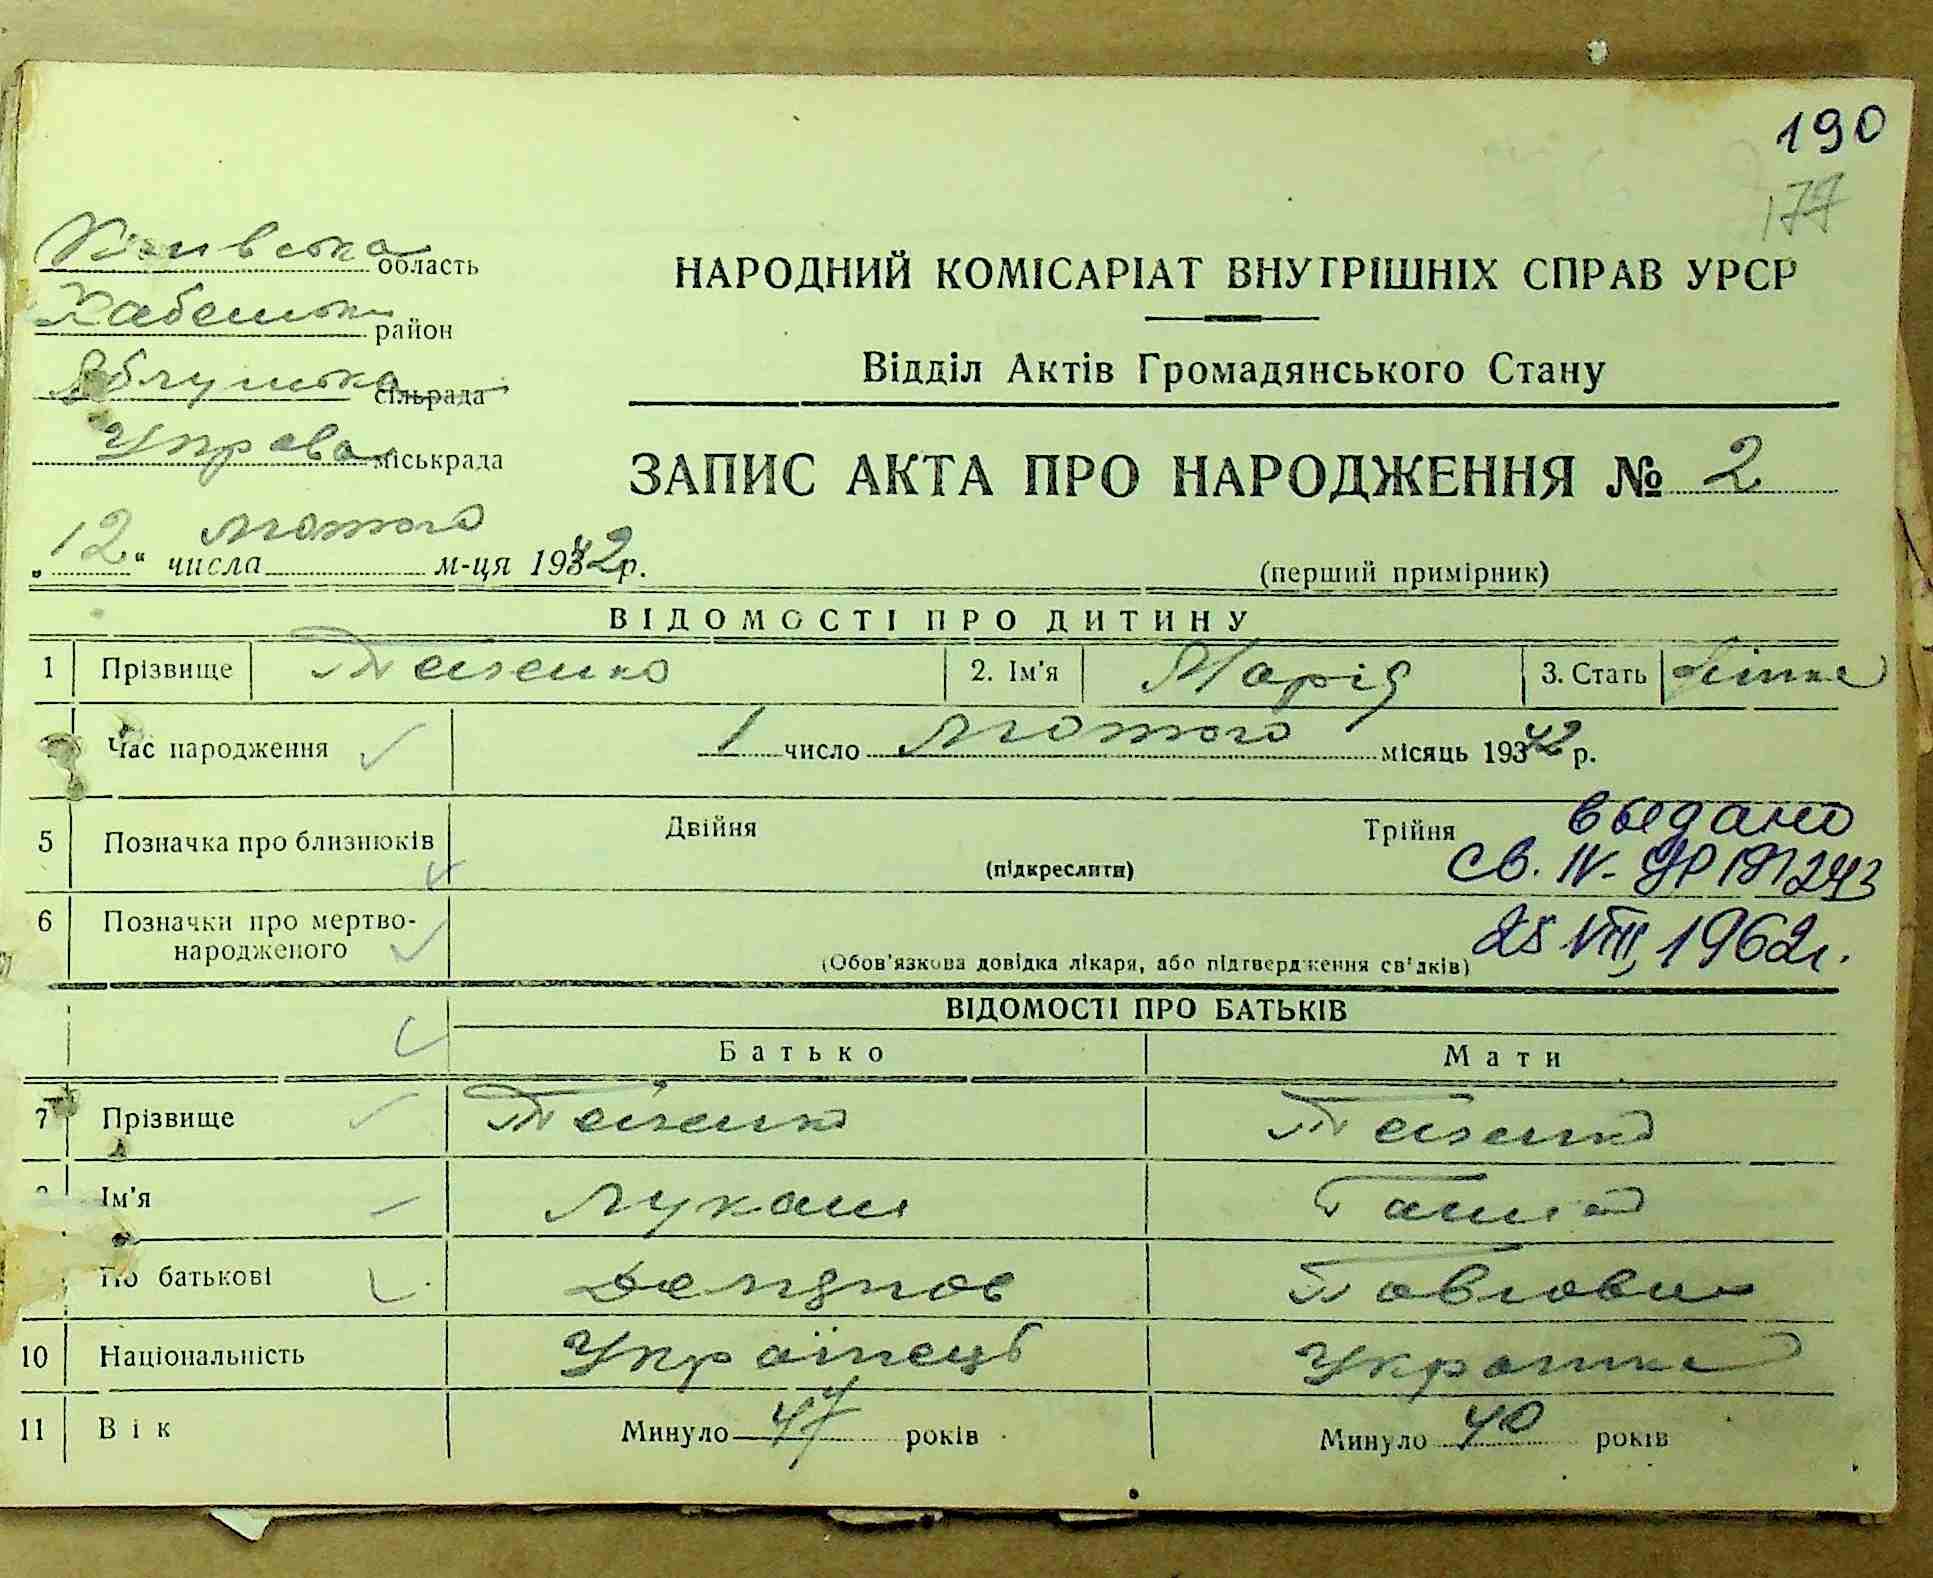 190
177
Київська область
Кабенськ район
Яблунська сільрада
Управа міськрада
НАРОДНИЙ КОМІСАРІАТ ВНУТРІШНІХ СПРАВ УРСР
Відділ Актів Громадянського Стану
ЗАПИС АКТА ПРО НАРОДЖЕННЯ № 2
„12“ числа лютого м-ця 1942р.
(перший примірник)
ВІДОМОСТІ ПРО ДИТИНУ
1 Прізвище 2. Ім'я Марія 3. Стать
Час народження 1 число лютого місяць 1942 р.
5 Позначка про близнюків Двійня Трійня
(підкреслити)
выдано
св. IV-
25 VIII 1962г.
6 Позначки про мертво-
народженого
(Обов'язкова довідка лікаря, або підтвердження св'дків)
ВІДОМОСТІ ПРО БАТЬКІВ
Батько Мати
7 Прізвище
Ім'я Лукаш Ганна
По батькові Демянов Павловна
10 Національність Українець Украинка
11 Вік Минуло 47 років Минуло 40 років